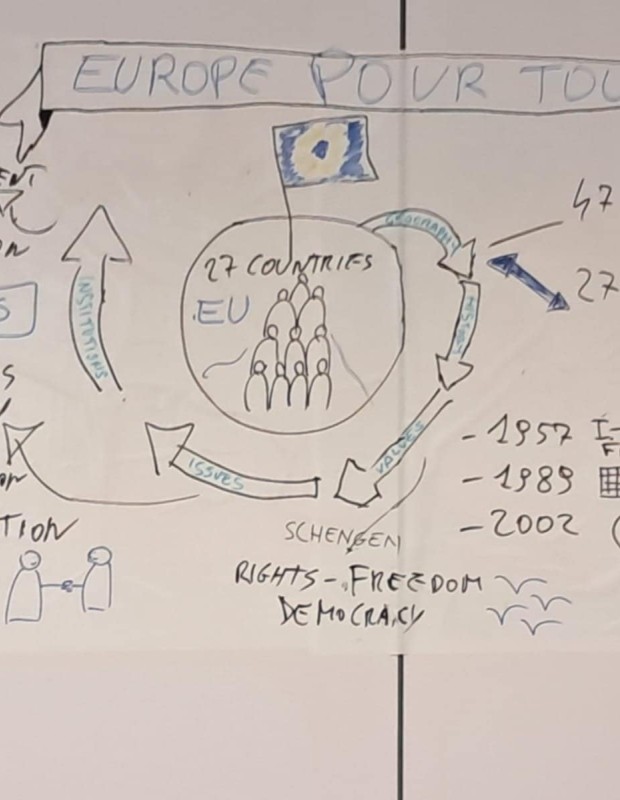 EUROPE POUR TOU
GEOGRAPHY
47
27 COUNTRIES
27
EU
INSTITUTIONS
S
S
VALUES
- 1957
ISSUES
- 1989
TION
- 2002
SCHENGEN
RIGHTS - FREEDOM
DEMOCRACY